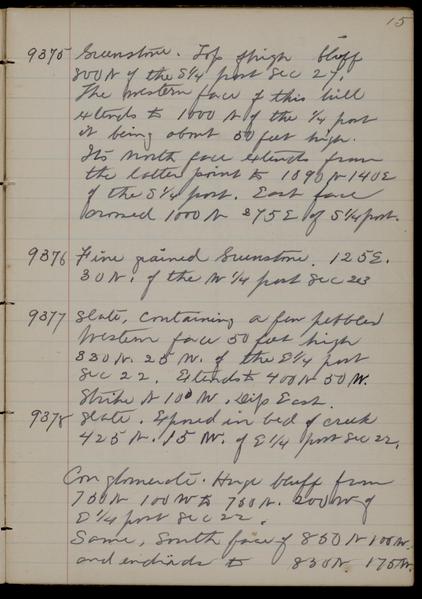 15
9375 Greenstone. Top of high bluff
800 N of the S 1/4 post Sec 27.
The western face of this hill
extends to 1000 N of the 1/4 post
it being about 50 feet high.
Its North face extends from
the latter point to 1090 N 140 E
of the S 1/4 post. East face
crossed 1000 N 275 E of S 1/4 post.
9376 Fine grained Greenstone. 125 E.
30 N. of the W 1/4 post Sec
9377 Slate, containing a few pebbles
Western face 50 feet high
330 N. 25 W. of the E 1/4 post
Sec 22. Extends to 400 N 50 W.
Strike N 10° W. Dip East.
9378 Slate. Exposed in bed of creek
425 N. 15 W. of E 1/4 post Sec 22.
Conglomerate. Huge bluff from
750 N 100 W to 750 N. 200 W of
E 1/4 post Sec 22.
Same, South face of 850 N 100 W.
and to 850 N 175 W.